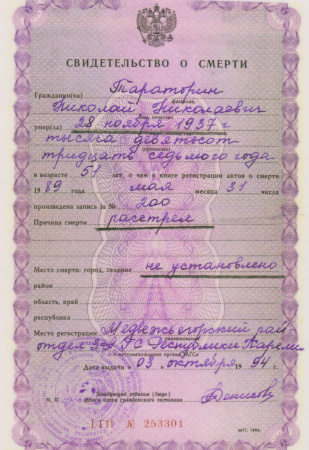 СВИДЕТЕЛЬСТВО О СМЕРТИ
Гражданин(ка) Тараторин
фамилия,
Николай Николаевич
имя, отчество
умер(ла) 28 ноября 1937 г
тысяча девятьсот
тридцать седьмого года
в возрасте 51 лет, о чем в книге регистрации актов о смерти
1989 года мая месяца 31 числа
произведена запись за № 200
Причина смерти расстрел
Место смерти: город, селение не установлено
район
область, край
республика
Место регистрации Медвежьегорский рай
отдел ЗАГС Республики Карели
Дата выдачи 03 октября 1994 г.
М. П.
Заведующий отделом (бюро)
записи актов гражданского состояния
I-ГП № 253301